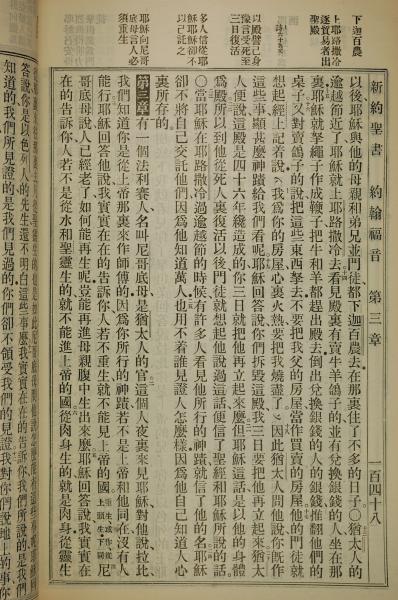 新約聖書 約翰福音 第三章 一百四十八
下迦百農
上耶路撒冷
逐貿易者出
聖殿
以殿譬己身
豫言受死至
三日復活
多人信從耶
穌耶穌卻不
以己託之
耶穌向尼哥
底母言人必
須重生
以後耶穌與他的母親和弟兄並門徒都下迦百農去在那裏住了不多的日子○猶太人的
逾越節近了耶穌就上耶路撒冷去看見殿裏有賣牛羊鴿子的並有兌換銀錢的人坐在那
裏耶穌就拏繩子作成鞭子把牛和羊都趕出殿去倒出兌換銀錢的人的銀錢推翻他們的
桌子又對賣鴿子的說把這些東西拏去不要把我父的房屋當作買賣的房屋他的門徒就
想起經上記着說我爲你的房屋心裏火熱要把我燒盡了因此猶太人問他說你旣作
這些事顯甚麼神蹟給我們看呢耶穌回答說你們拆毀這殿我三日要把他再立起來猶太
人便說這殿是四十六年纔造成的你三日就把他再立起來麼但耶穌這話是以他的身體
爲殿所以到他從死人裏復活以後門徒就想起他說過這話便信了聖經和耶穌所說的話
○當耶穌在耶路撒冷過逾越節的時候有許多人看見他所行的神蹟就信了他的名耶穌
卻不將自己交託他們因爲他知道萬人也用不着誰見證人怎麼樣因爲他自己知道人心
裏所存的
第三章有一個法利賽人名叫尼哥底母是猶太人的官這個人夜裏來見耶穌對他說拉比
我們知道你是從上帝那裏來作師傅的因爲你所行的神蹟若不是上帝和他同在沒有人
能行耶穌回答他說我實實在在的告訴你人若不重生就不能見上帝的國 尼
哥底母說人已經老了如何能再生呢豈能再進母親腹中生出來麼耶穌回答說我實實
在的告訴你人若不是從水和聖靈生的就不能進上帝的國從肉身生的就是肉身從靈生
答說你是以色列人的先生還不明白這些事麼我實實在在的告訴你我們所說的是我們
知道的我們所見證的是我們見過的你們卻不領受我們的見證我對你們說地上的事你